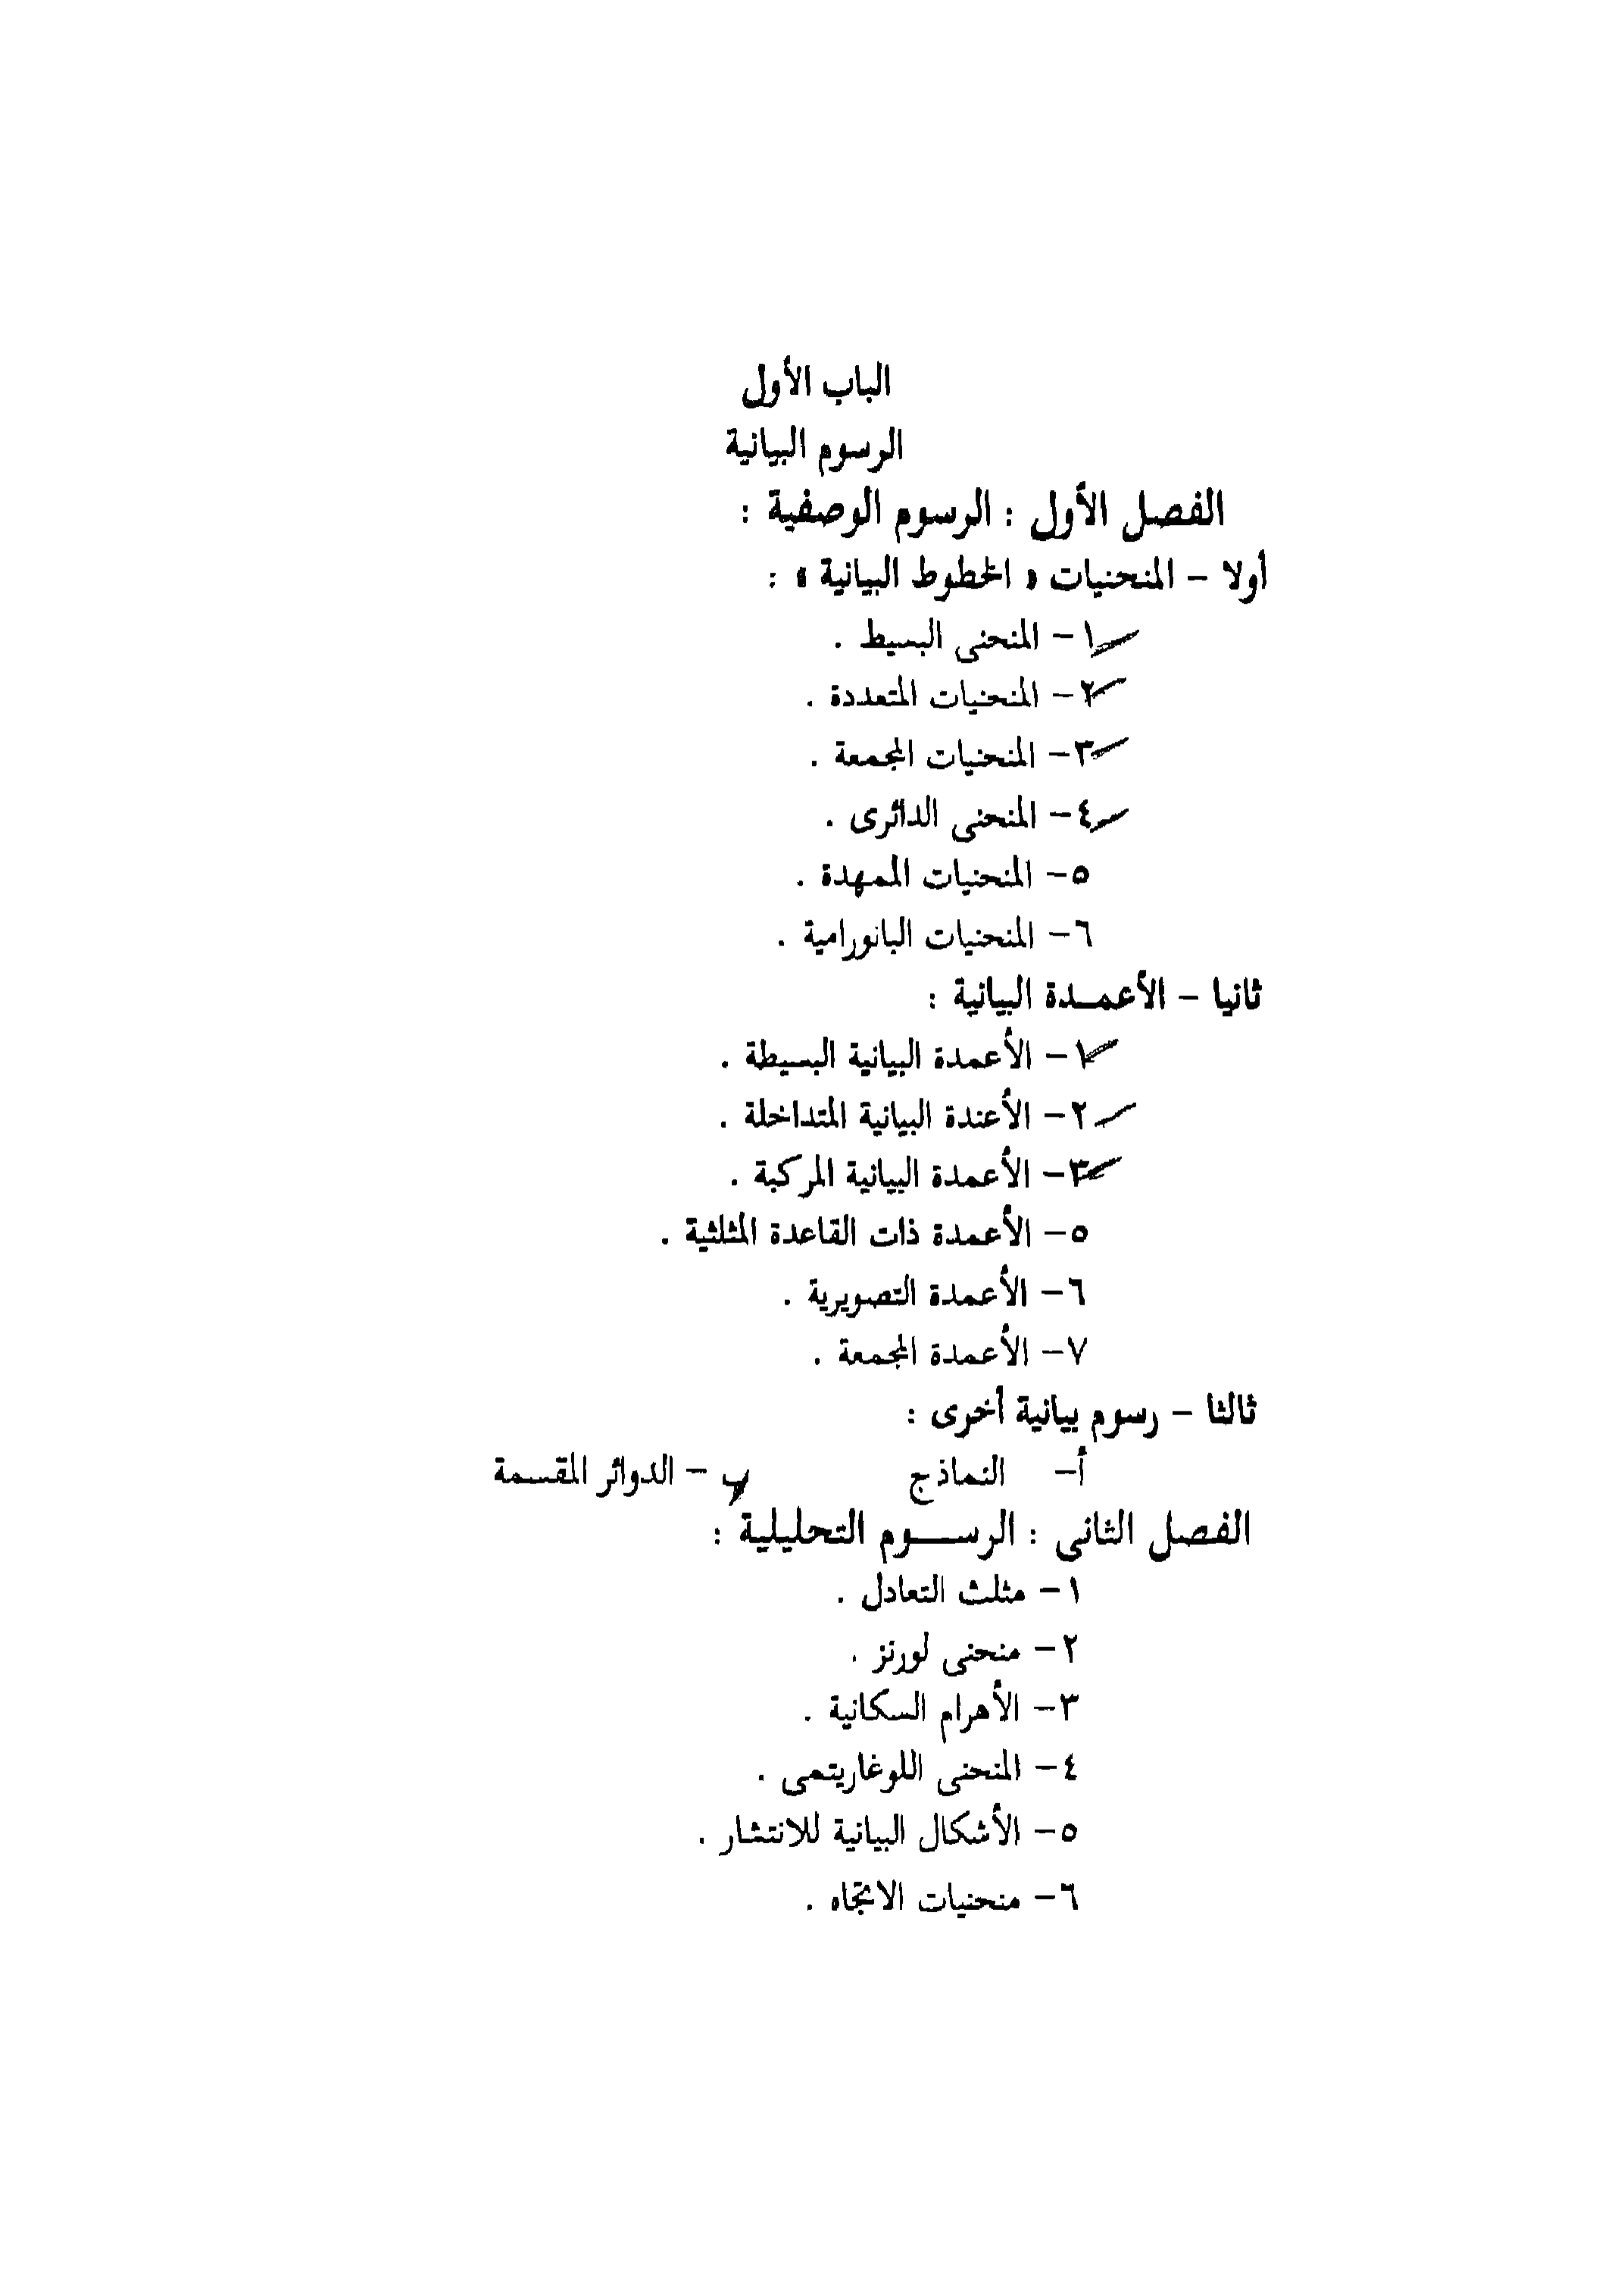 الباب الأول
الرسوم البيانية
الفصل الأول : الرسوم الوصفية :
أولا - المنحنيات « الخطوط البيانية » :
١- المنحنى البسيط .
٢- المنحنيات المتعددة .
٣- المنحنيات المجمعة .
٤- المنحنى الدائرى .
٥- المنحنيات الممهدة .
٦- المنحنيات البانورامية .
ثانيا - الأعمدة البيانية :
١- الأعمدة البيانية البسيطة .
٢- الأعندة البيانية المتداخلة .
٣- الأعمدة البيانية المركبة .
٥- الأعمدة ذات القاعدة المثلثية .
٦- الأعمدة التصويرية .
٧- الأعمدة المجمعة .
ثالثا - رسوم بيانية أخرى :
أ- النماذج ب - الدوائر المقسمة
الفصل الثانى : الرسوم التحليلية :
١- مثلث التعادل .
٢- منحنى لورنز .
٣- الأهرام السكانية .
٤- المنحنى اللوغاريتمى .
٥- الأشكال البيانية للانتشار .
٦- منحنيات الاتجاه .